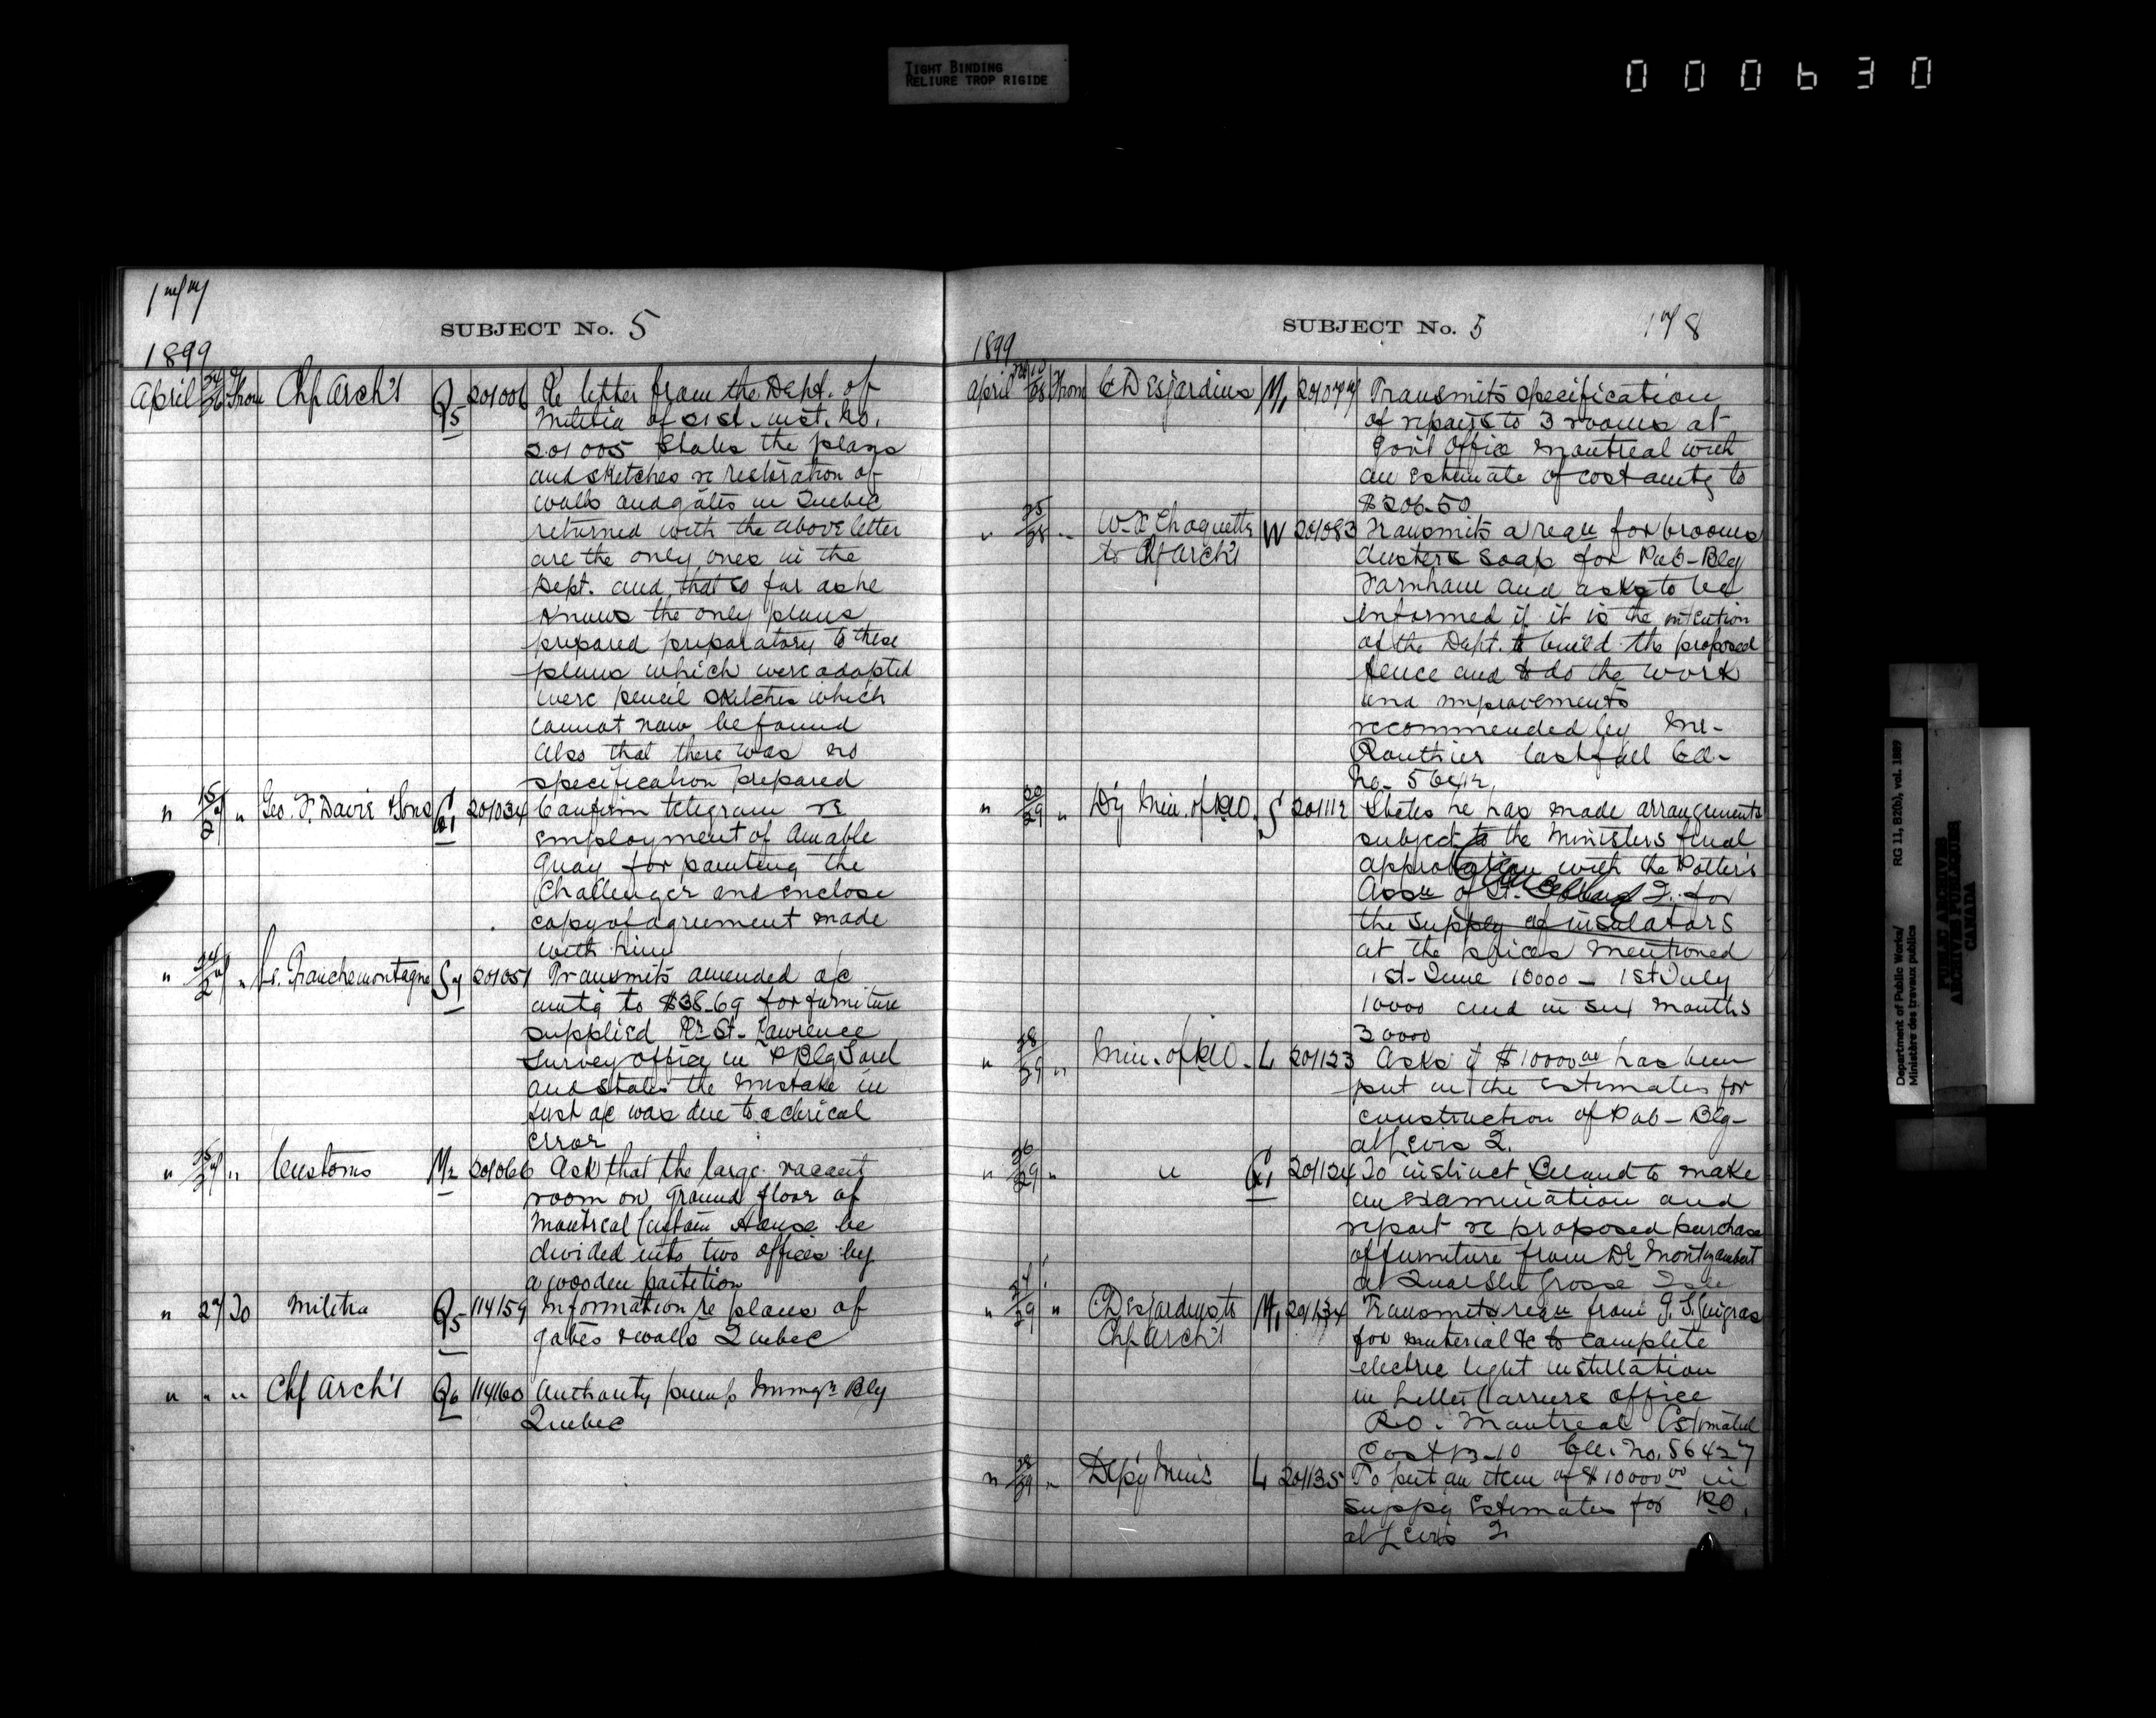 TIGHT BINDING
RELIURE TROP RIGIDE
000630
177
SUBJECT No. 5
1899
April 24/26 From Chf Arch't Q5 201006 Re letter from the Dept. of
Militia of 21st. inst. No.
201005 States the plans
and sketches re restoration of
walls and gates in Quebec
returned with the above letter
are the only ones in the
Dept. and that so far as he
knows the only plans
prepared preparatory to these
plans which were adopted
were pencil sketches which
cannot now be found
Also that there was no
specification prepared
" 15/27 " Geo. T. Davie & Sons 201034 Confirm telegram re
employment of Amable
Quay for painting the
Challenger and enclose
copy of agreement made
with him
" 24/27 " Ls. Franchemontagne S7 201051 Transmits amended a/c
amtg to $38.69 for furniture
supplied Rr St. Lawrence
Survey office in P Blg Sorel
and states the mistake in
first a/c was due to a clerical
error
" 25/27 " Customs M2 201066 Ask that the large vacant
room on ground floor of
Montreal Custom House be
divided into two offices by
a wooden partition
" 27 To Militia Q5 114159 Information re plans of
gates & walls Quebec
" " " Chf Arch't Q6 114160 Authority pump Immgn Blg
Quebec
SUBJECT No. 5
178
1899
April /28 From C Desjardins M1 201077 Transmits specification
of repairs to 3 rooms at
Gov't Office Montreal with
an estimate of cost amtg to
$206.50
" 25/28 " W. X Choquette W 201083 Transmits a requ for brooms
to Chf Arch't
dusters soap for Pub-Blg
Farnham and asks to be
informed if it is the intention
of the Dept. to build the proposed
fence and to do the work
and improvements
recommended by Mr.
Gauthier last fall Ell-
No.
" 20/29 " D'y Min. of P.W. S 201112 States he has made arrangements
subject to the Ministers final
approbation with the Potter's
Assn of St. Q. for
the supply of insulators
at the prices mentioned
1st June 10000 - 1st July
10000 and in six months
30000
" 28/29 " Min. of P.W. L 201123 Asks if $10000.00 has been
put in the estimates for
construction of Pub-Blg-
at Levis Q.
" 26/29 " " G1 201124 To instruct Beland to make
an examination and
report re proposed purchase
of furniture from Dr Montizambert
at Quar Stn Grosse Isle
" 27/29 " C Desjardins to M1 201134 Transmits requ from G. S. Guigras
Chf Arch't
for material &c to complete
electric light instillation
in Letter Carriers office
P.O. Montreal Estimated
Cost 13-10 Ell. No. 56427
" 28/29 " Dep'y Min'r L 201135 To put an item of $10000.00 in
Suppy Estimates for P.O.
at Levis Q
Department of Public Works/
Ministère des travaux publics
RG 11, B2(b), vol. 1889
PUBLIC ARCHIVES
ARCHIVES PUBLIQUES
CANADA